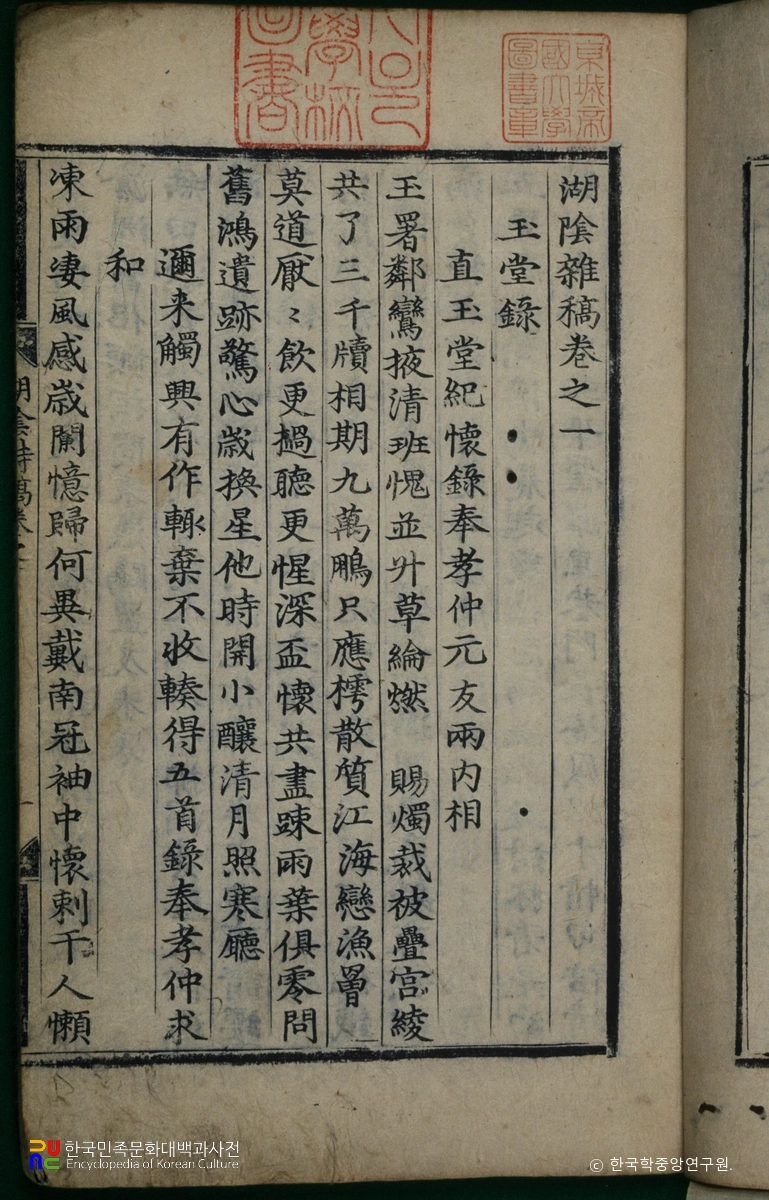 湖陰雜稿卷之一
玉堂錄
直玉堂紀懷錄奉孝仲元友兩內相
玉署鄰鸞掖清班愧並升草綸燃 賜燭裁被疊宮綾
共了三千牘相期九萬鵬只應樗散質江海戀漁罾
莫道厭〻飲更撾聽更惺深盃懷共盡踈雨葉俱零問
舊鴻遺跡驚心歲換星他時開小釀清月照寒廳
邇来觸興有作輒棄不收輳得五首錄奉孝仲求
和
凍雨凄風感歲闌憶歸何異戴南冠袖中懷刺干人懶
圖書章
東城帝
國大學
圖書章
한국민족문화대백과사전
Encyclopedia of Korean Culture
© 한국학중앙연구원.